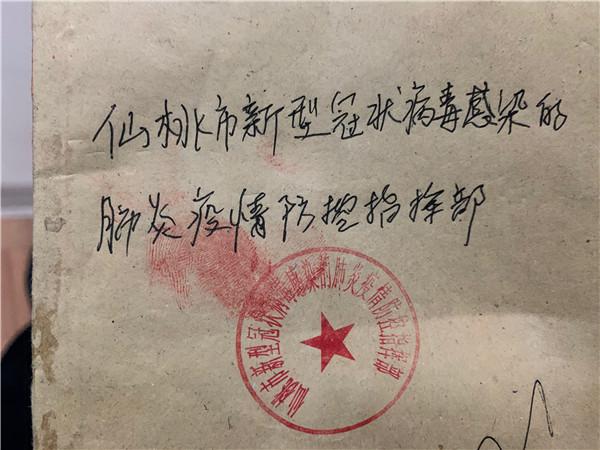 仙桃市新型冠状病毒感染的
肺炎疫情防控指挥部
仙桃市新型冠状病毒感染的肺炎疫情防控指挥部